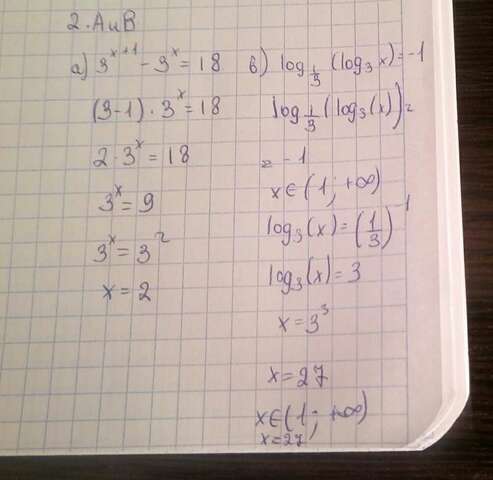 2. А и В
а) 3^{x+1} - 3^x = 18
(3-1) · 3^x = 18
2 · 3^x = 18
3^x = 9
3^x = 3^2
x = 2
в) log_{1/3} (log_3 x) = -1
log_{1/3} (log_3(x)) =
= -1
x ∈ (1; +∞)
log_3(x) = (1/3)^{-1}
log_3(x) = 3
x = 3^3
x = 27
x ∈ (1; +∞)
x = 27